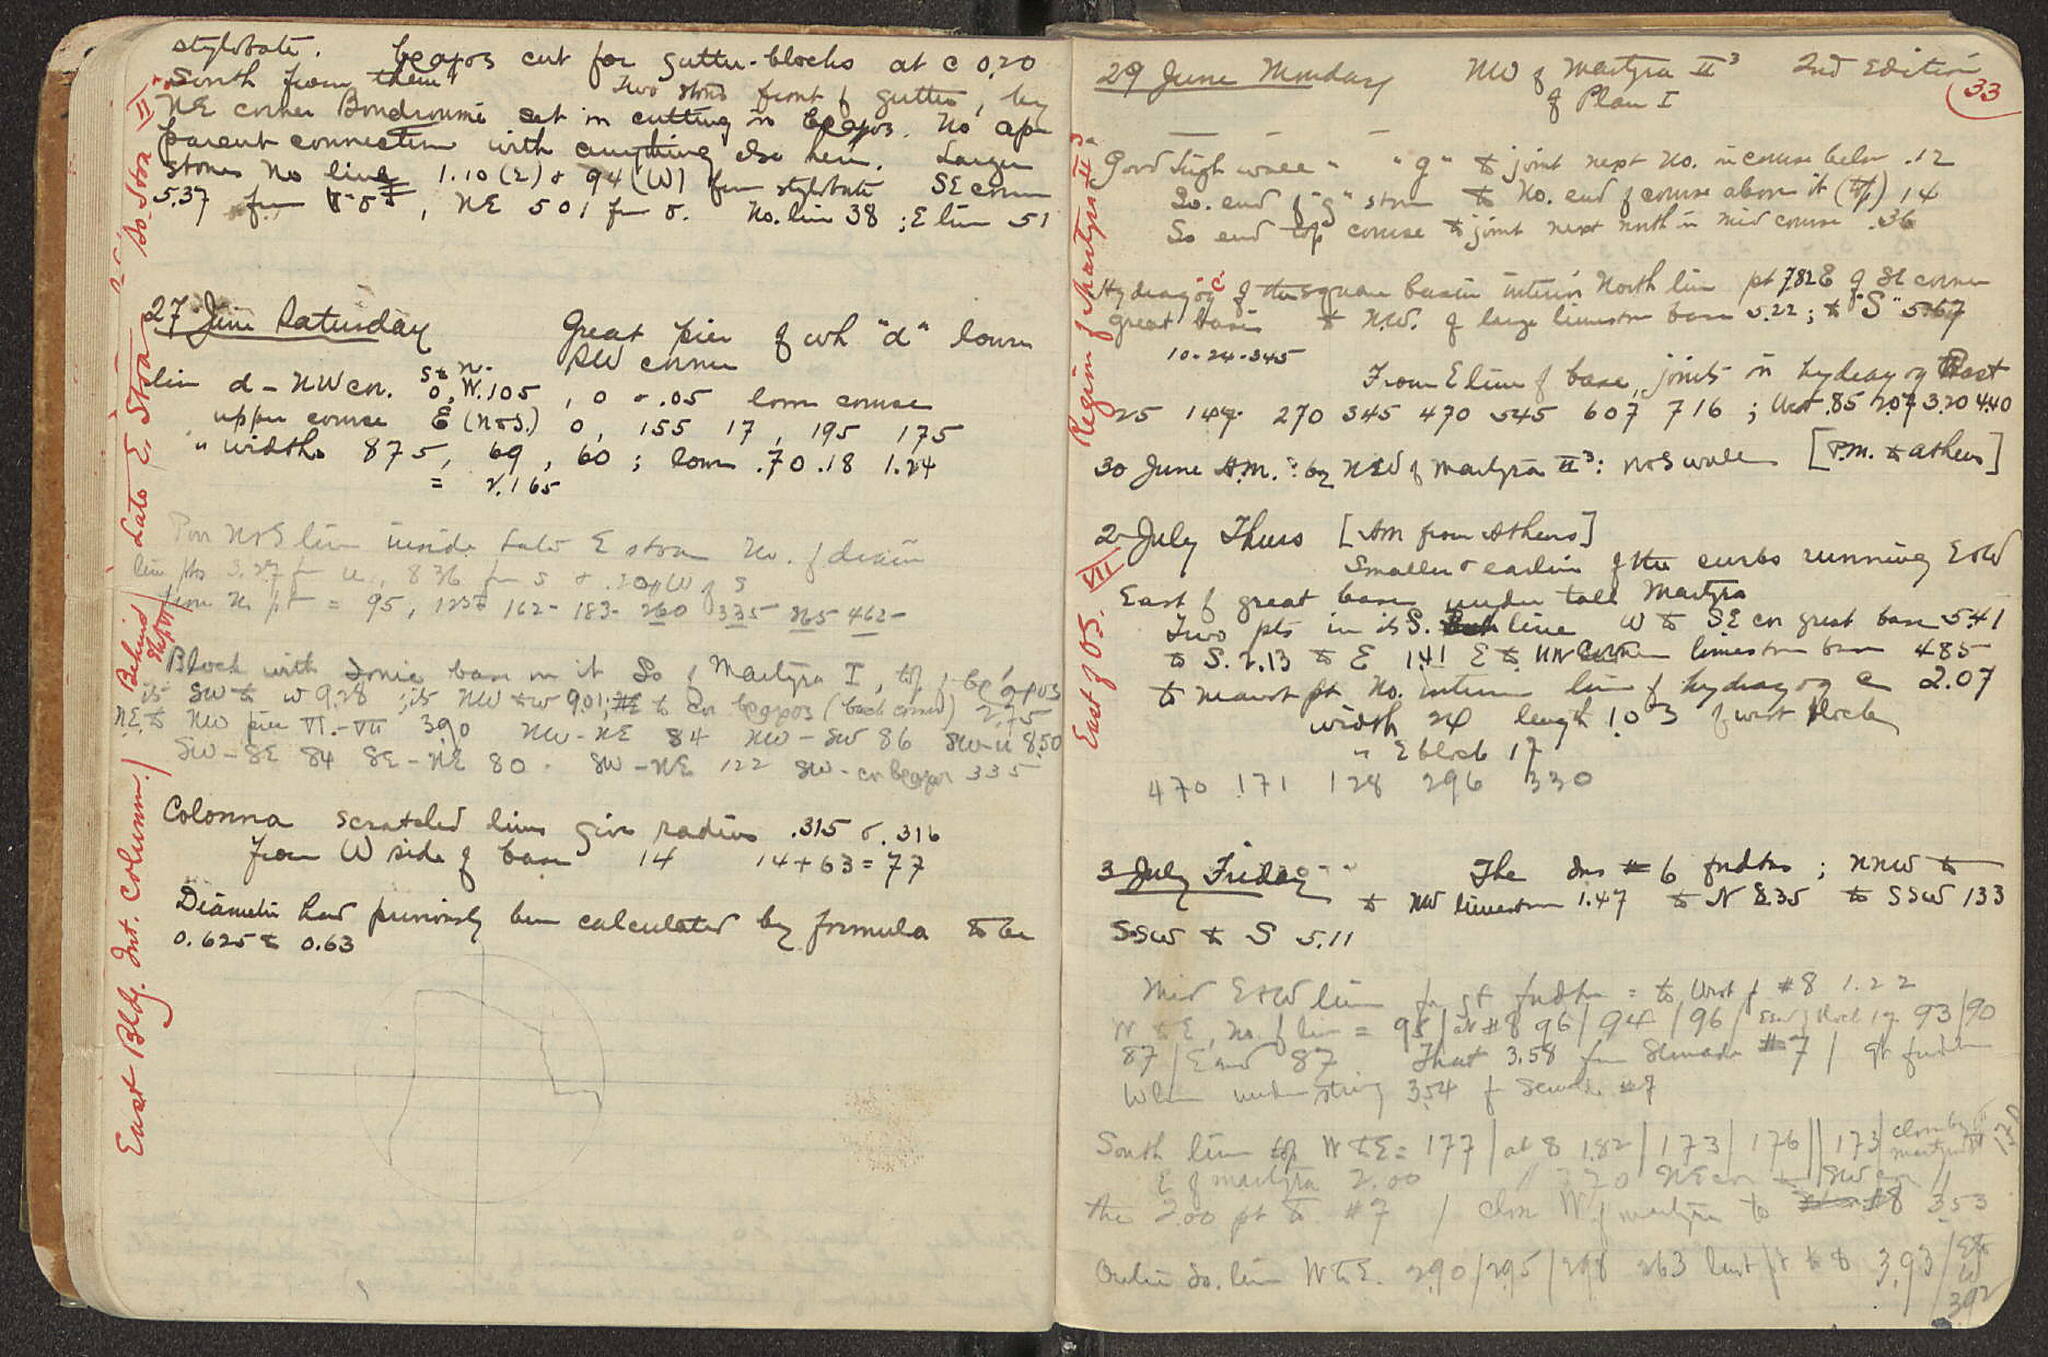 stylobate. bēapos cut for gutter-blocks at c 0,20
South from them. Two stones front of gutter, by
NE corner Boudroumi set in cutting in bēapos. No ap-
parent connection with anything else here. Larger
stones No line 1.10 (E) & 94 (W) from stylobate SE corner
5.37 from, NE 501 from σ. No. line 38 ; E line 51
27 June Saturday Great pier of wh "d" lower
SW corner
line d - NW cor. S to N. 0, W. 105, 0 & .05 lower course
upper course E (N & S.) 0, 155 17, 195 175
" widths 875, 69, 60 ; lower .70 .18 1.24
= 2.165
Poor N & S line inside Late E stoa No. of drain
line pts 3.27 from u, 836 from s & .20 of W of s
from N. pt = 95, 162- 183- 260 335 365 462-
Block with Ionic base on it So of Martyra I, top of bēapos
its SW to w 9.28 ; its NW to w 9.01; to cor bēapos (back corner) 2.75
NE to NW pier VI.-VII 390 NW-NE 84 NW-SW 86 SW-u 8.50
SW-SE 84 SE-NE 80 . SW-NE 122 SW-cor bēapos 335
Colonna scratched lines give radius .315 & .316
from W side of base 14 14+63=77
Diameter had previously been calculated by formula to be
0.625 to 0.63
So. Stoa III
Late E. Stoa
Behind
East Bldg. Int. Column.
29 June Monday NW of Martyra II³ 2nd Edition
of Plan I
33
Good high wall " " "g" to joint next No. in course below .12
So. end of "g" stone to No. end of course above it (top) 14
So end top course to joint next north in mid course .36
Hydragog of the square basin interior North line pt 782 E of SE corner
great basis to N.W. of large limestone base 5.22 ; to "S" 5.67
10-24-345
From E line of base, joints in hydragog East
25 149 270 345 470 545 607 716 ; West .85 2.07 3.20 4.40
30 June A.M. : by NW of Martyra II³: N & S wall [P.M. to Athens]
2 July Thurs [AM from Athens]
Smaller & earlier of the curbs running E & W
East of great base under tall Martyra
Two pts in its S. line W to SE cor great base 5.41
to S. 2.13 to E 1.41 E to NW corner limestone base 485
to nearest pt No. interior line of hydragog C 2.07
width 24 length 1.03 of west block
" E block 17
470 171 128 296 330
3 July Friday The #6 fndtns ; NNW to
to NW limestone 1.47 to N 8.35 to SSW 133
SSW to S 5.11
Mid E & W line for gt fndtn = to West of #8 1.22
W to E, No. of line = 95 / at #8 96 / 94 / 96 / 93 / 90
87 / E end 87 That 3.58 from Semade #7 / gt fndtn
When under string 354 f Semade #7
South line top W to E = 177 / at 8 1.82 / 173 / 176 // 173 / close by
E of martyra 2.00 720 NE cor to SW cor
the 200 pt to #7 / close W of martyra to #8 353
Outer So. line W to E. 290 / 295 / 298 263 last pt to 8 3.93 / E to
W
392
Region of Martyra II³
East of OS. VII